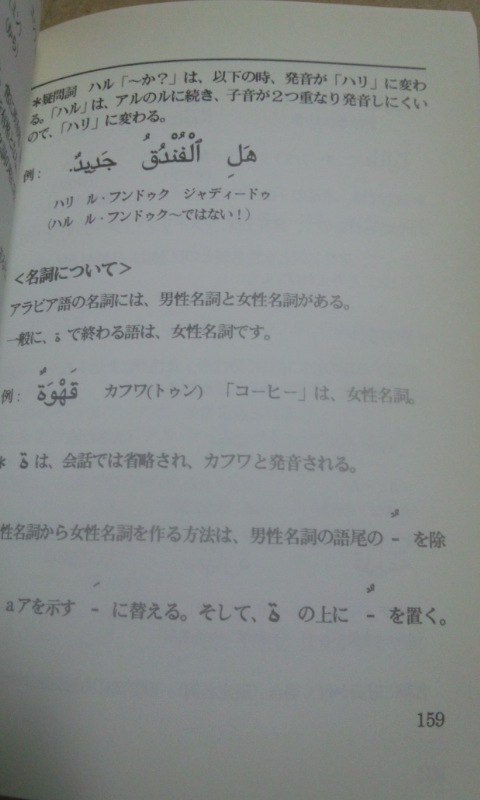 *疑問詞 ハル「〜か？」は、以下の時、発音が「ハリ」に変わ
る。「ハル」は、アルのルに続き、子音が２つ重なり発音しにくい
ので、「ハリ」に変わる。
例： هَلِ الْفُنْدُقُ جَدِيدٌ.
ハリ ル・フンドゥク ジャディードゥ
（ハル ル・フンドゥク〜ではない！）
＜名詞について＞
アラビア語の名詞には、男性名詞と女性名詞がある。
一般に、ة で終わる語は、女性名詞です。
例： قَهْوَةٌ カフワ(トゥン) 「コーヒー」は、女性名詞。
* ةは、会話では省略され、カフワと発音される。
性名詞から女性名詞を作る方法は、男性名詞の語尾の ـٌ を除
aアを示す ـَ に替える。そして、ة の上に ـٌ を置く。
159